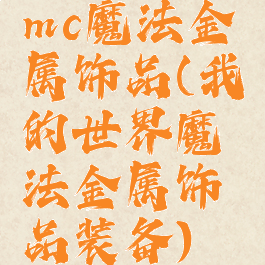 mc魔法金
属饰品(我
的世界魔
法金属饰
品装备)